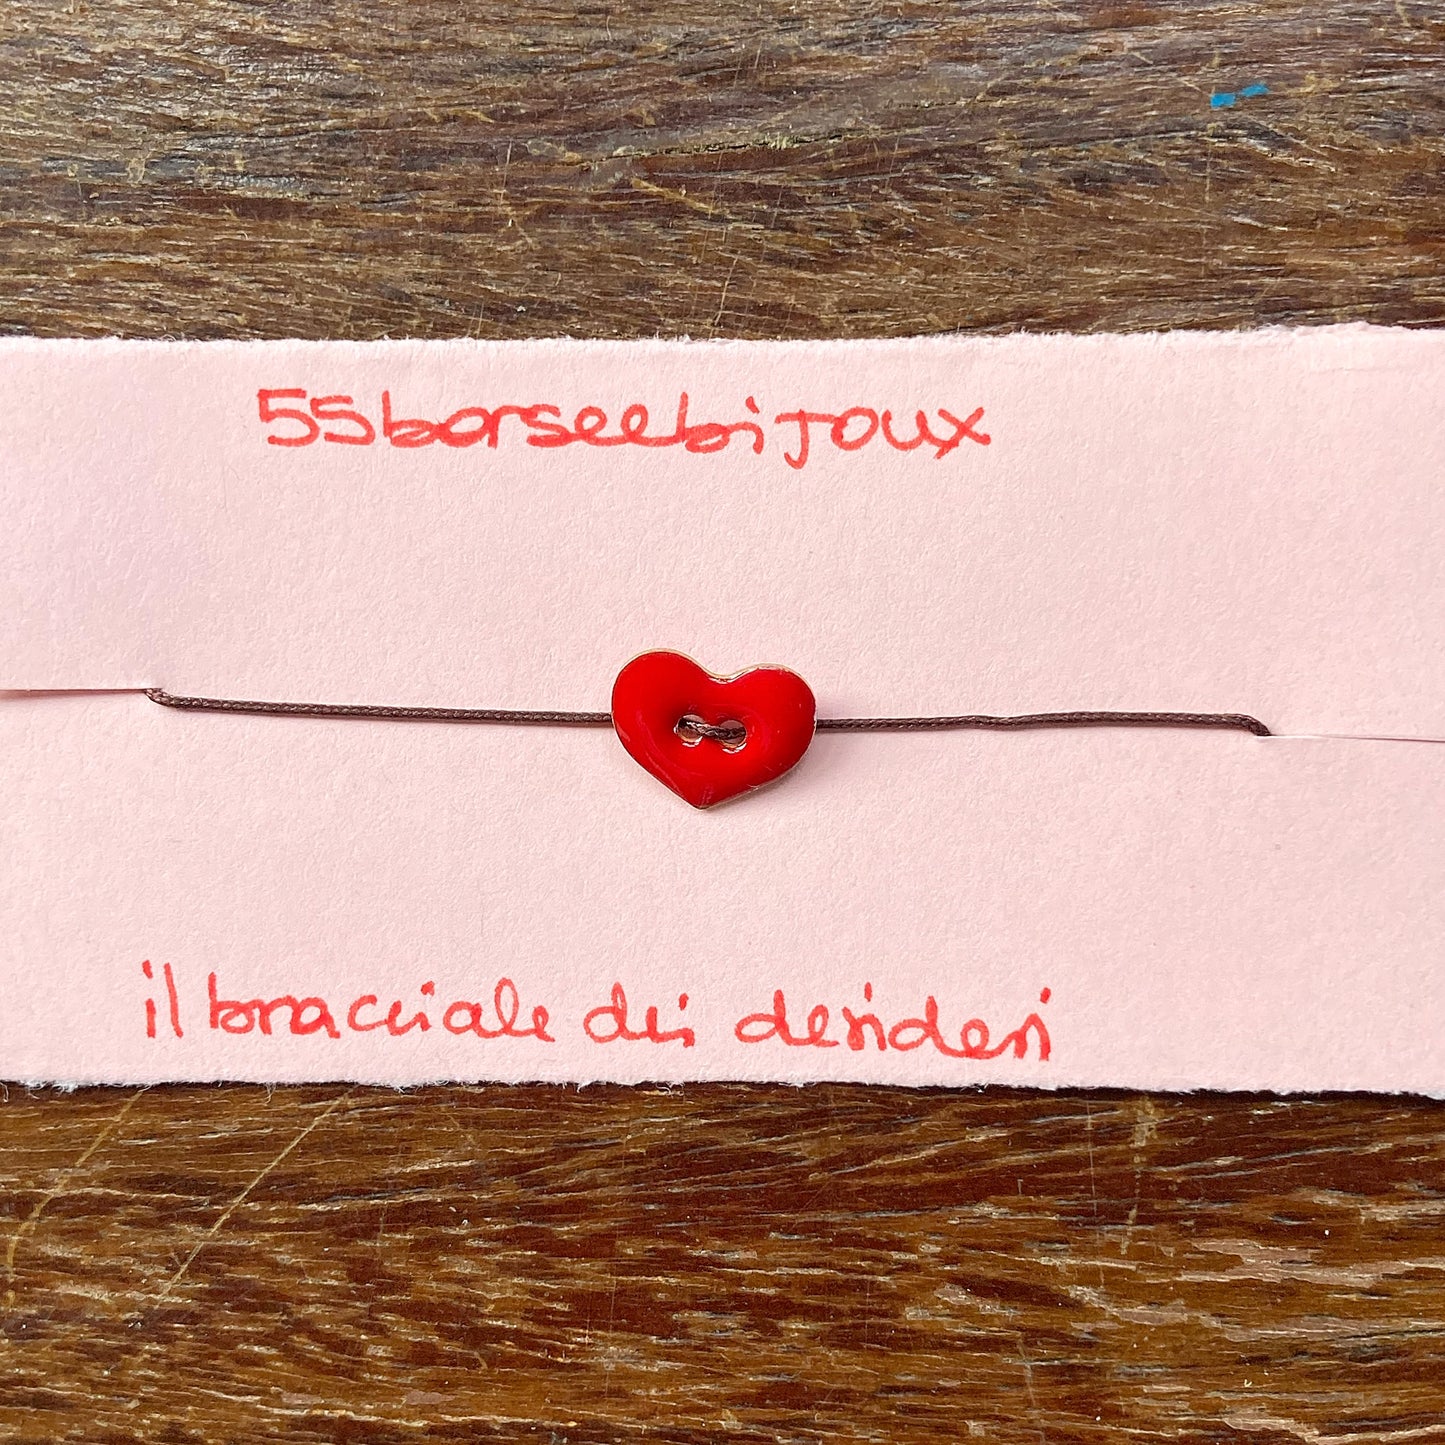 55borseebijoux
il bracciale dei desideri